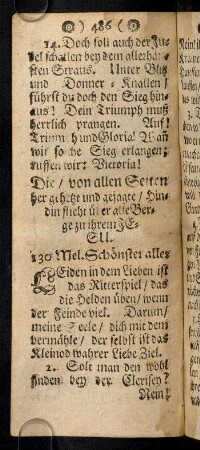 ) 486 (
14. Doch soll auch der Ju⸗
bel schallen bey dem allerhär⸗
sten Straus. Unter Blitz
und Donner⸗Knallen/
führst du doch den Sieg hin⸗
aus! Dein Triumph muß
herrlich prangen. Auf!
Trium h und Gloria! Wañ
wir so he Sieg erlangen;
ruffen wir: Victoria!
Die / von allen Seiten
her gehetzt und gejagte / Hin⸗
din flieht über alle Ber⸗
ge zu ihrem JE⸗
SU.
130. Mel. Schönster alles
Leiden in dem Lieben ist
das Ritterspiel / das
die Helden üben / wenn
der Feinde viel. Darum /
meine Seele / dich mit dem
vermähle / der selbst ist das
Kleinod wahrer Liebe Ziel.
2. Solt man den wohl
finden bey der Clerisey?
Nein!